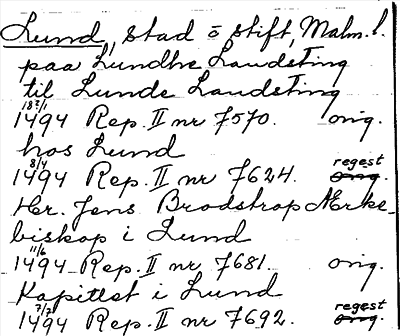 Lund, stad o stift, Malm. l.
paa Lundhe Landsting
til Lunde Landsting
18 2/1
1494 Rep. II nr 7570. orig.
hos Lund
8/4 regest
1494 Rep. II nr 7624. orig.
Hr. Jens Brodstrop Ærke-
biskop i Lund
11/6
1494 Rep. II nr 7681. orig.
Kapitlet i Lund
7/7 regest
1494 Rep. II nr 7692. orig.